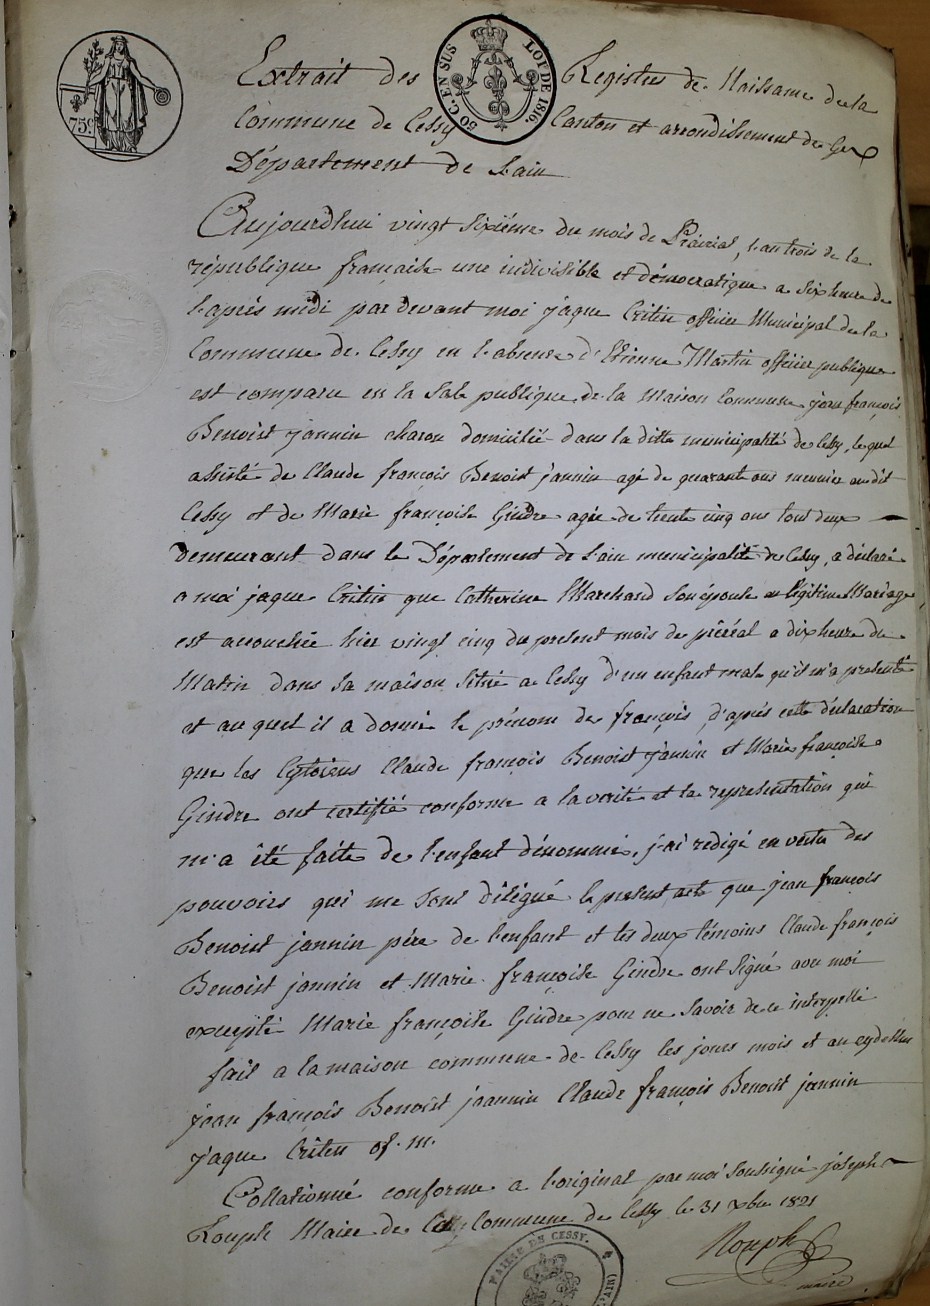 75c.
50 C. EN SUS LOI DE 1816.
Extrait des Registres de Naissance de la
Commune de Cessy Canton et arrondissement de Gex
Département de L'ain
Aujourdhui vingt sixième du mois de Prairial, l'an trois de la
république française une indivisible et démocratique a six heure de
l'après midi par devant moi jaque Critin officier Municipal de la
Commune de Cessy en l'absence d'Etienne Martin officier publique
est comparu en la Sale publique de la Maison Commune jean françois
Benoist jannin charon domicilié dans la ditte municipalité de Cessy, lequel
assisté de Claude françois Benoist jannin agé de quarant ans meunier au dit
Cessy et de Marie françoise Gindre agée de trente cinq ans tout deux
demeurant dans le Département de L'ain municipalité de Cessy, a déclaré
a moi jaque Critin que Catherine Marchand Son épouse en légitime Mariage
est accouchée hier vingt cinq du present mois de a dix heure du
Matin dans sa maison Situé a Cessy d'un enfant male qu'il m'a présenté
et au quel il a donné le prénom de françois, d'après cette déclaration
que les Cytoiens Claude françois Benoist jannin et Marie françoise
Gindre ont certifié conforme a la verité et la representation qui
m'a été faite de l'enfant dénommé, j'ai redigé en vertu des
pouvoirs qui me Sont délégué le present acte que jean françois
Benoist jannin père de l'enfant et les deux témoins Claude françois
Benoist jannin et Marie françoise Gindre ont Signé avec moi
excepté Marie françoise Gindre pour ne Savoir de ce interpellé
fait a la maison commune de Cessy les jours mois et an cy dessus
jean françois Benoist jaannin Claude françois Benoist jannin
jaque Criten of. m.
Collationné conforme a l'original par moi Soussigné joseph
Rouph Maire de la Commune de Cessy le 31 xbre 1821
Rouph
maire
MAIRIE DE CESSY.